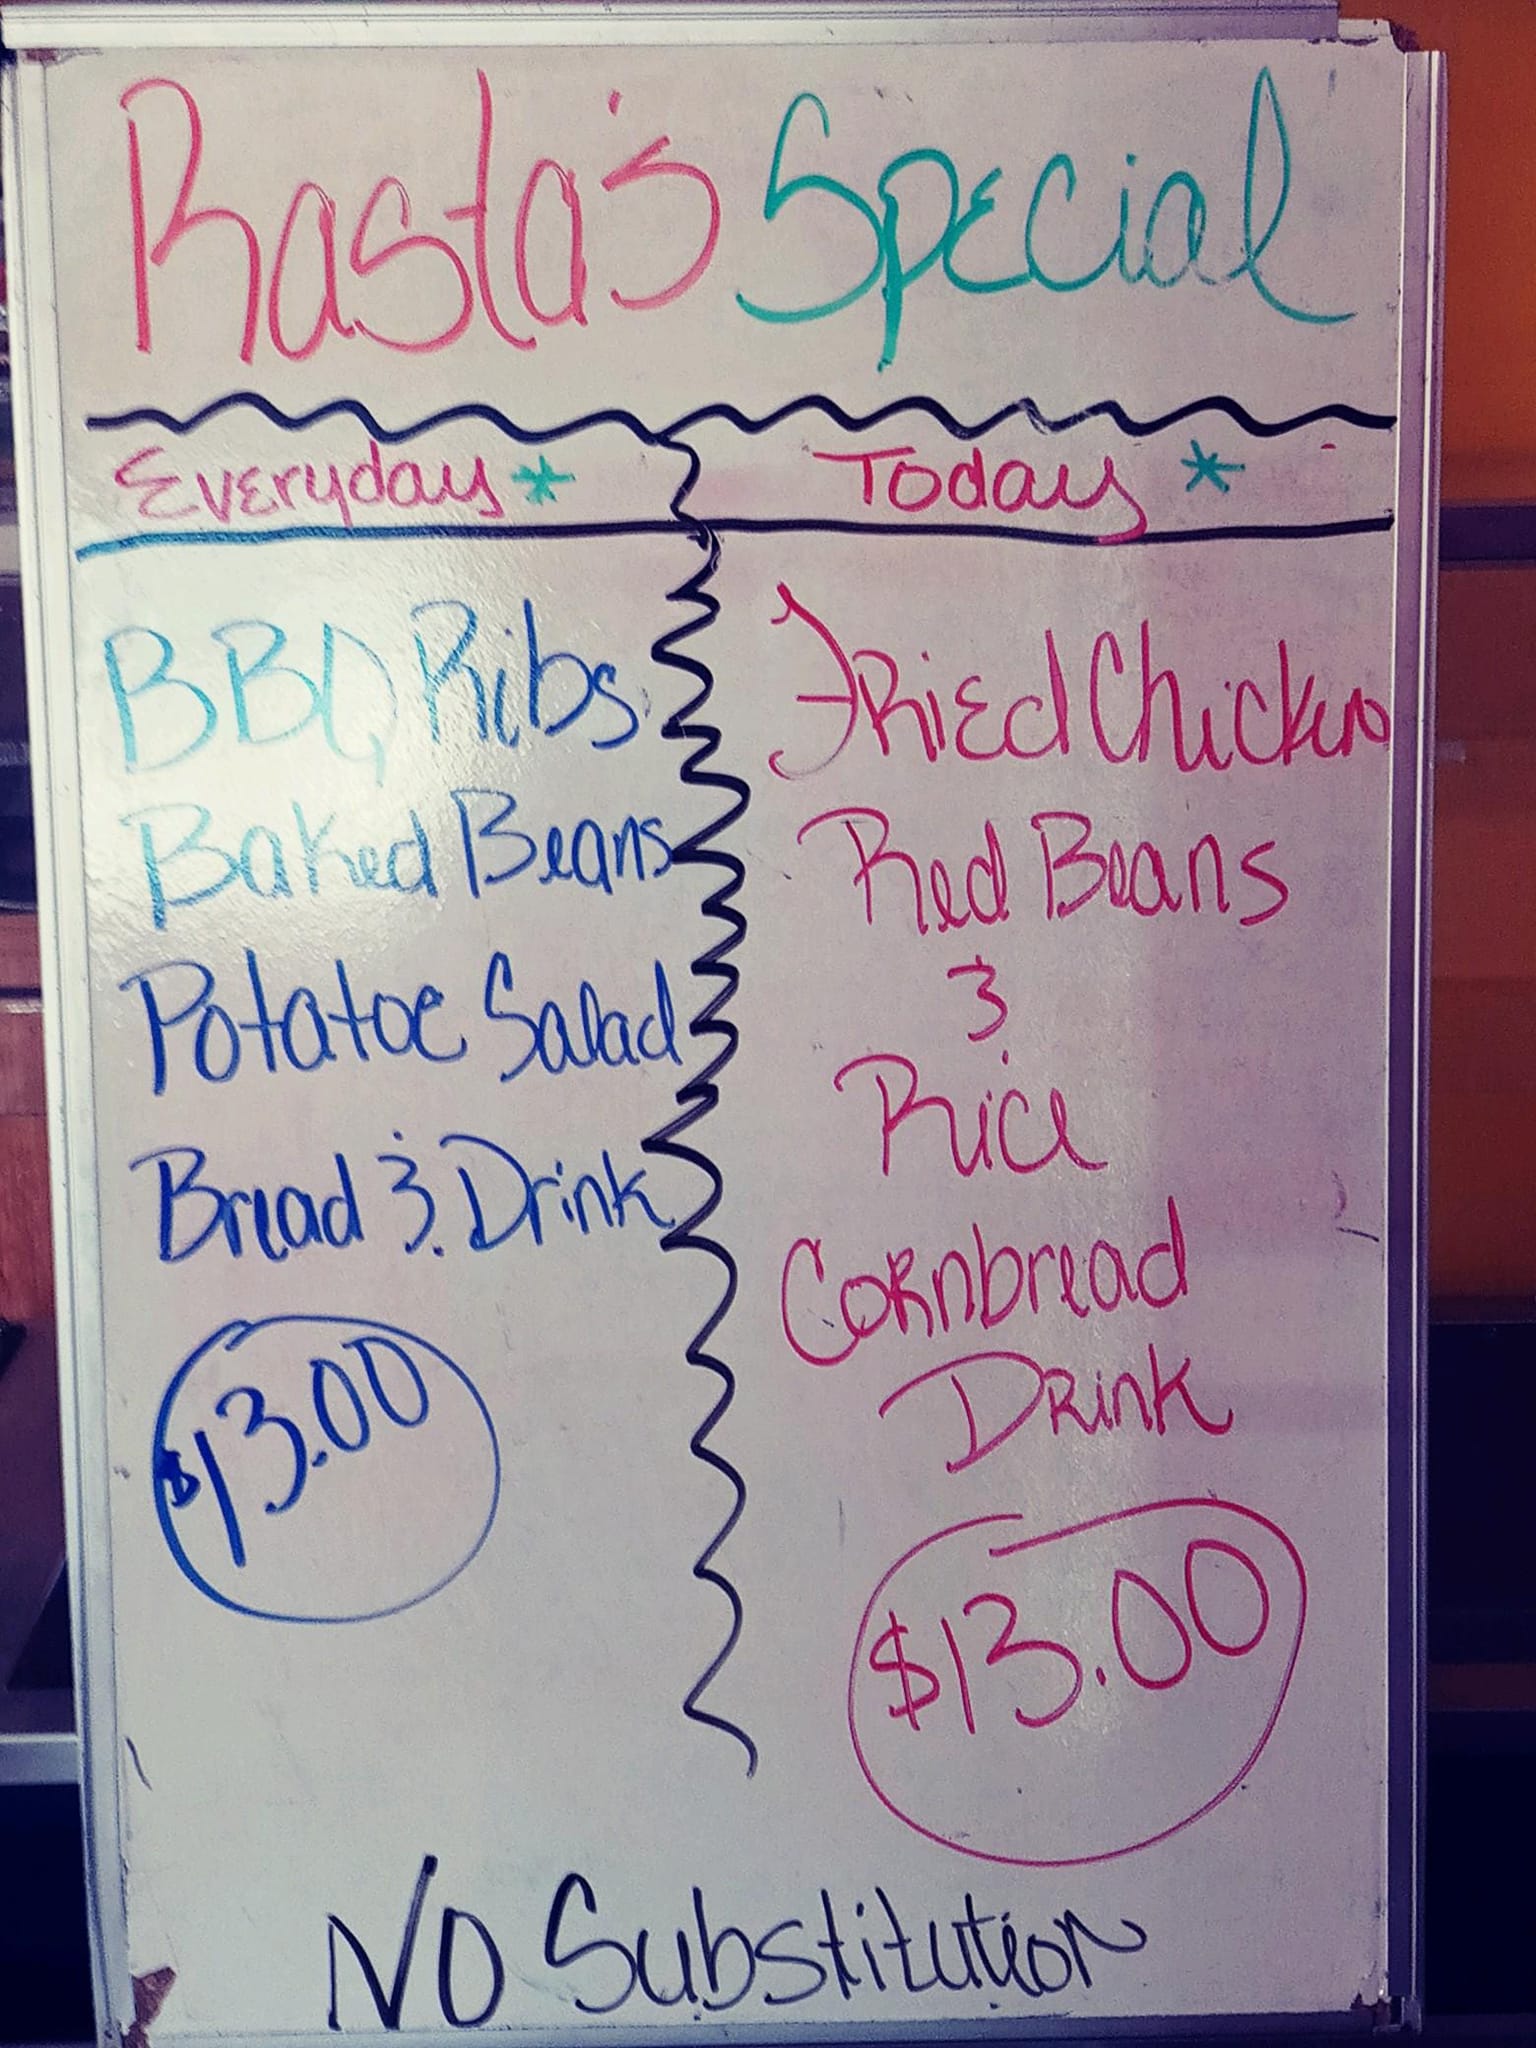 Rasta's Special
Everyday *
BBQ Ribs
Baked Beans
Potatoe Salad
Bread & Drink
$13.00
Today *
Fried Chicken
Red Beans
&
Rice
Cornbread
Drink
$13.00
No Substitution